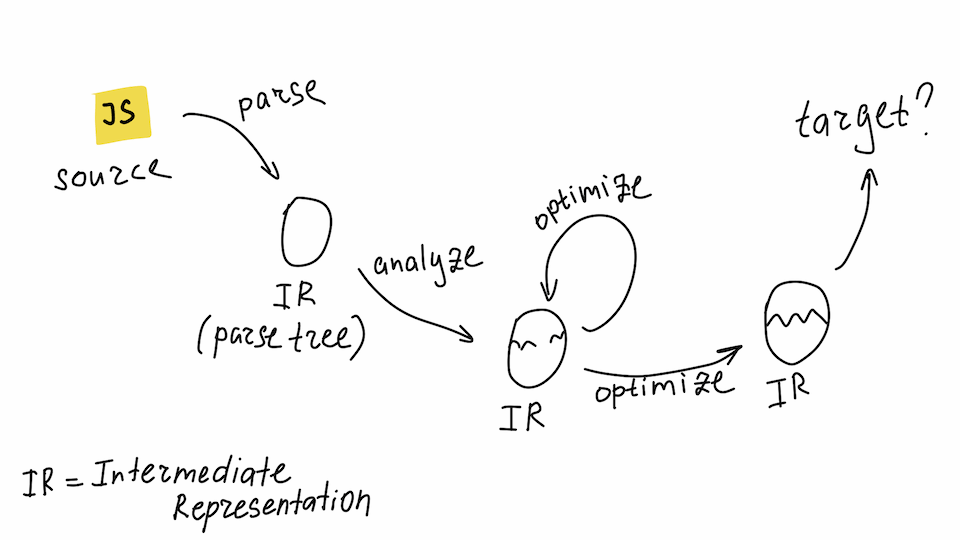 JS
source
parse
IR
(parse tree)
analyze
optimize
IR
optimize
IR
target?
IR = Intermediate
Representation